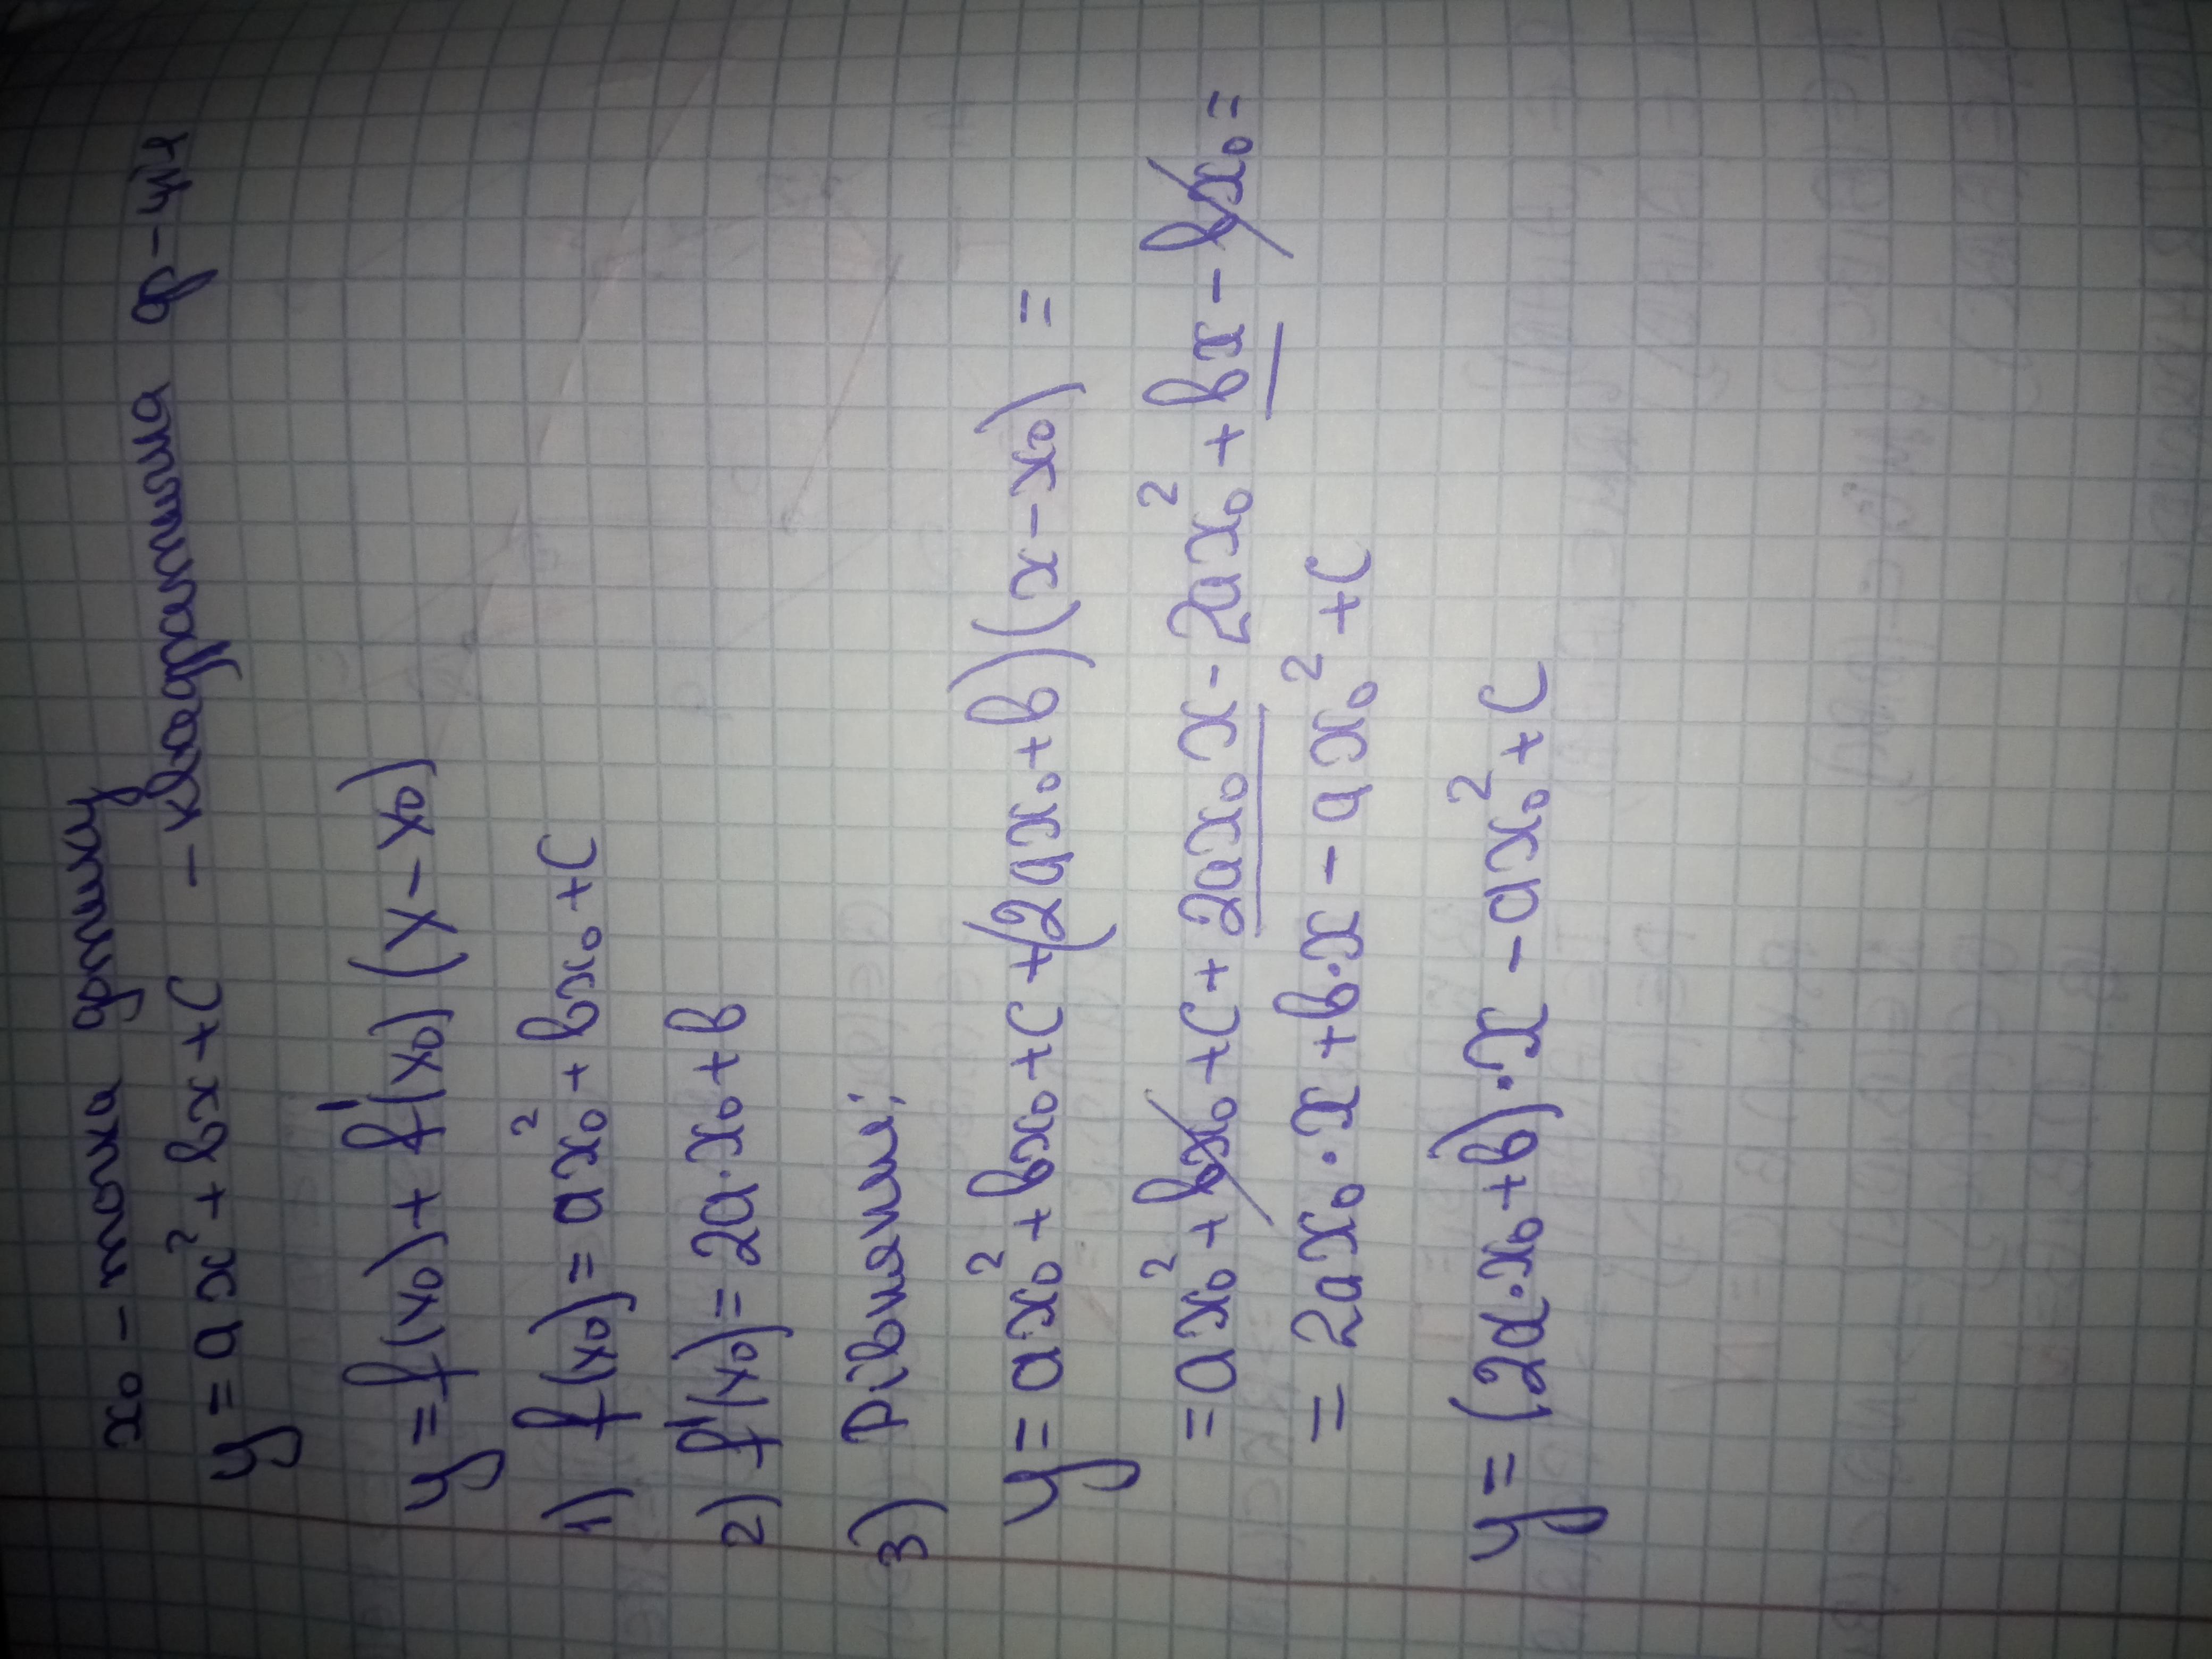 x₀ - точка дотику
y = ax² + bx + c - квадратична ф-ція
y = f(x₀) + f'(x₀)(x - x₀)
1) f(x₀) = ax₀² + bx₀ + c
2) f'(x₀) = 2a·x₀ + b
3) Рівняння:
y = ax₀² + bx₀ + c + (2ax₀ + b)(x - x₀) =
= ax₀² + bx₀ + c + 2ax₀x - 2ax₀² + bx - bx₀ =
= 2ax₀·x + b·x - ax₀² + c
y = (2a·x₀ + b)·x - ax₀² + c